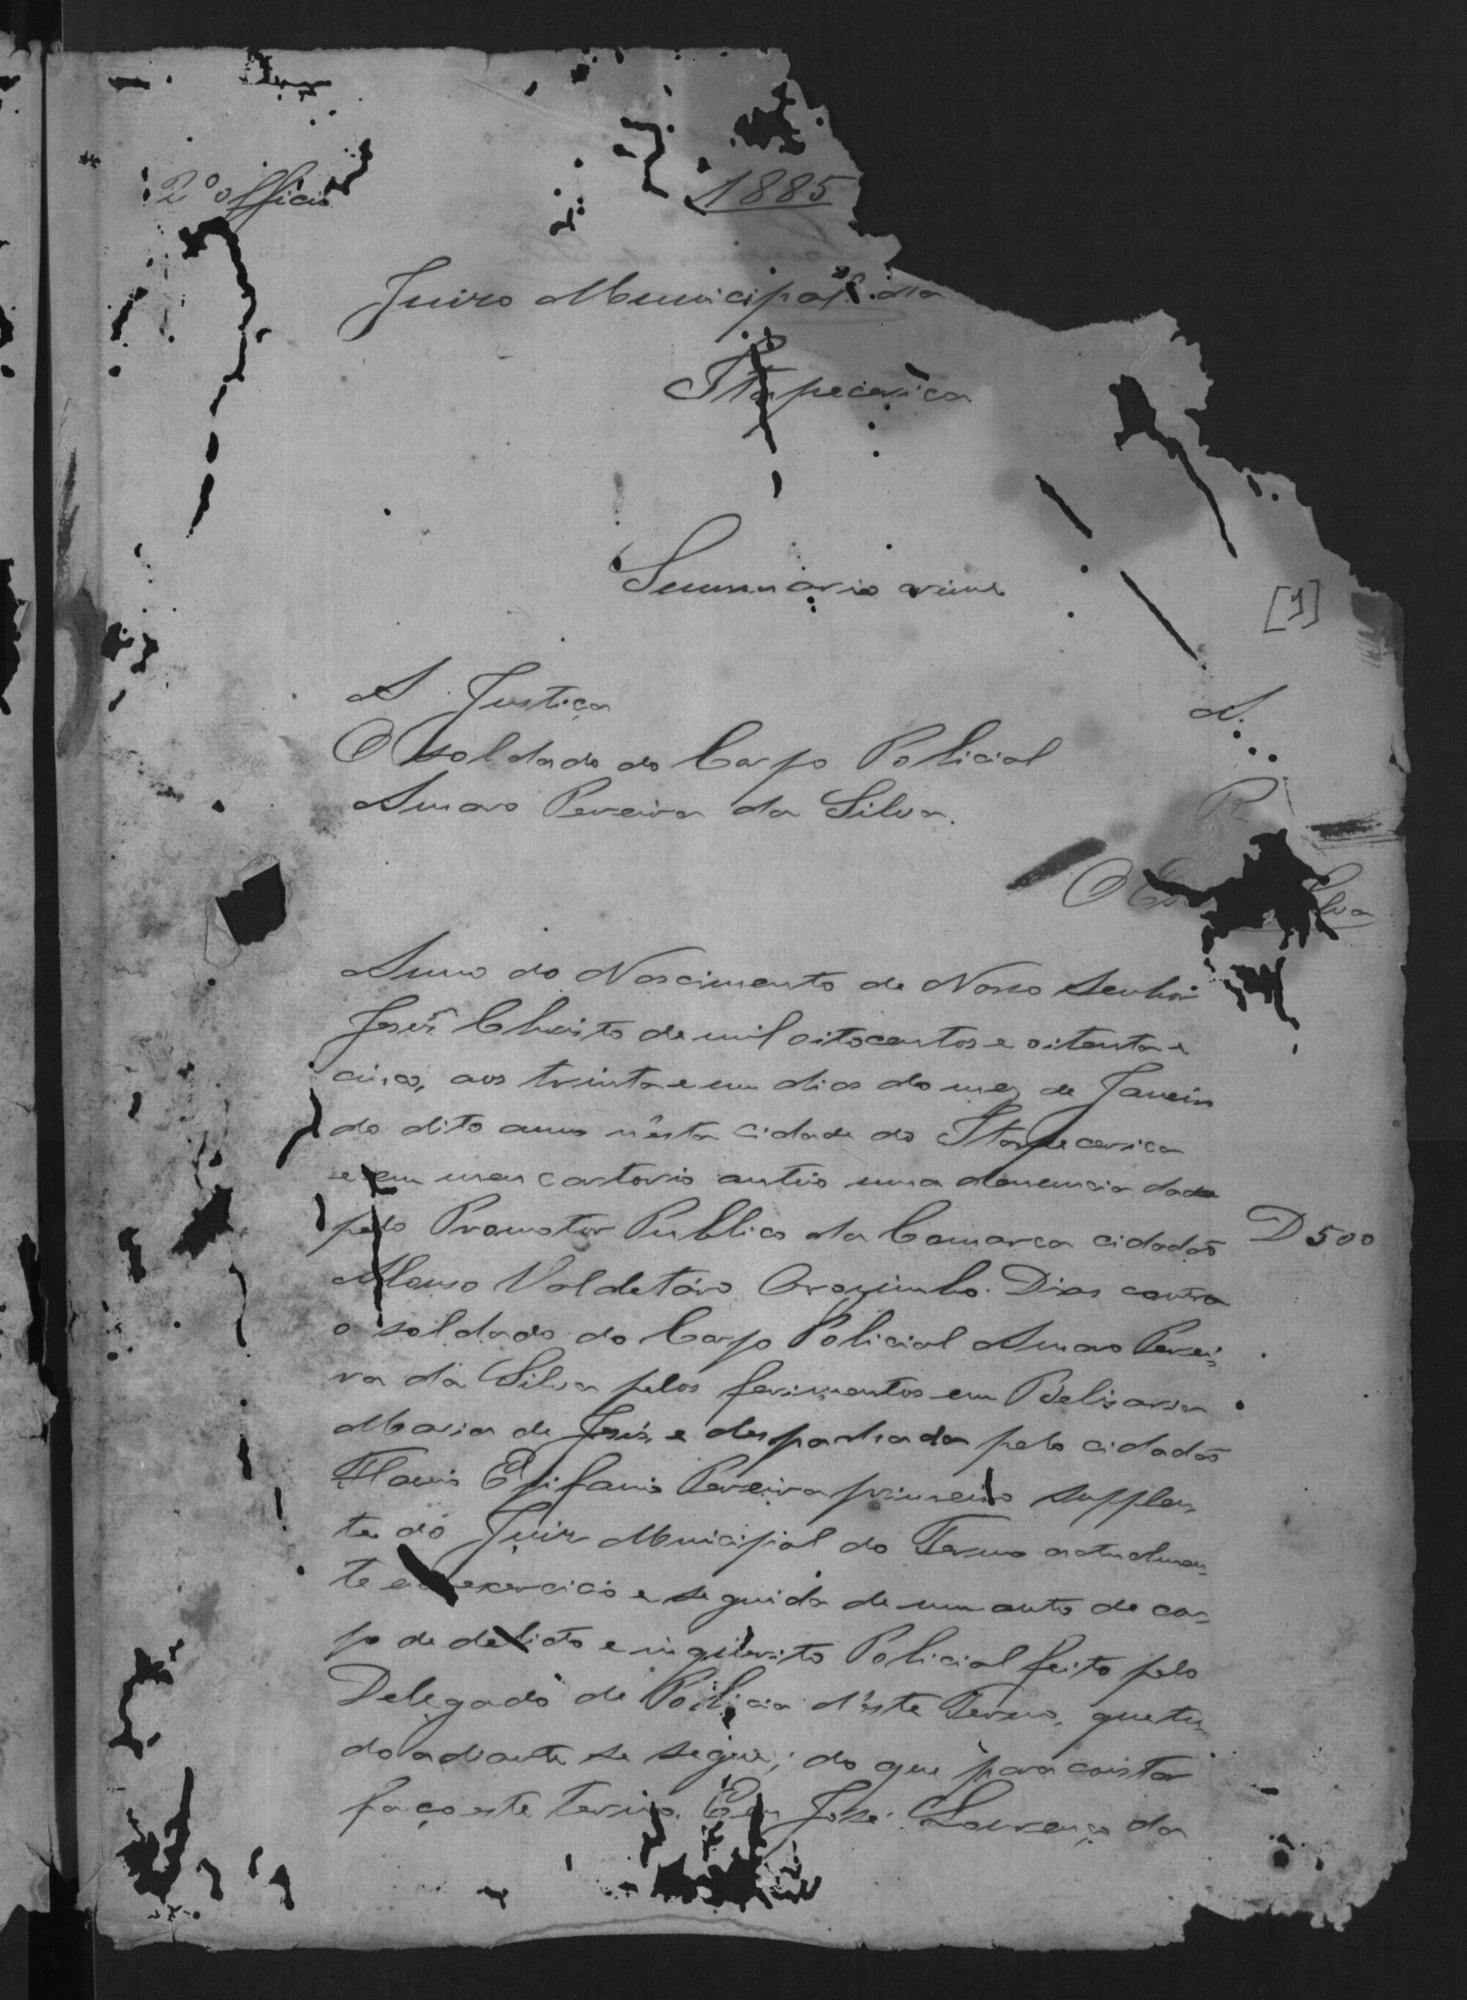 2º officio
1885
Juizo Municipal da
Itapecerica
Summario crime
[1]
A Justiça A.
O soldado do Corpo Policial
Amaro Pereira da Silva. R
O Es Silva
Anno do Nascimento de Nosso Senhor
Jesus Christo de mil oitocentos e oitenta e
cinco, aos trinta e um dias do mez de Janeiro
do dito anno n'esta cidade do Itapecerica
e em meu cartorio autúo uma denuncia dada
pelo Promotor Publico da Comarca cidadão D 500
Valdetáro Dias contra
o soldado do Corpo Policial Amaro Perei-
ra da Silva pelos ferimentos em Belisaria
Maria de Jesus, e despachada pelo cidadão
Flavio Epifanio Pereira primeiro supplen-
te do Juiz Municipal do Termo actualmen-
te em exercicio e seguida de um auto de cor-
po de delicto e inquerito Policial feito pelo
Delegado de Policia d'este Termo, que tu-
do adiante se segue; do que para constar
faço este termo. Eu José Lourenço da